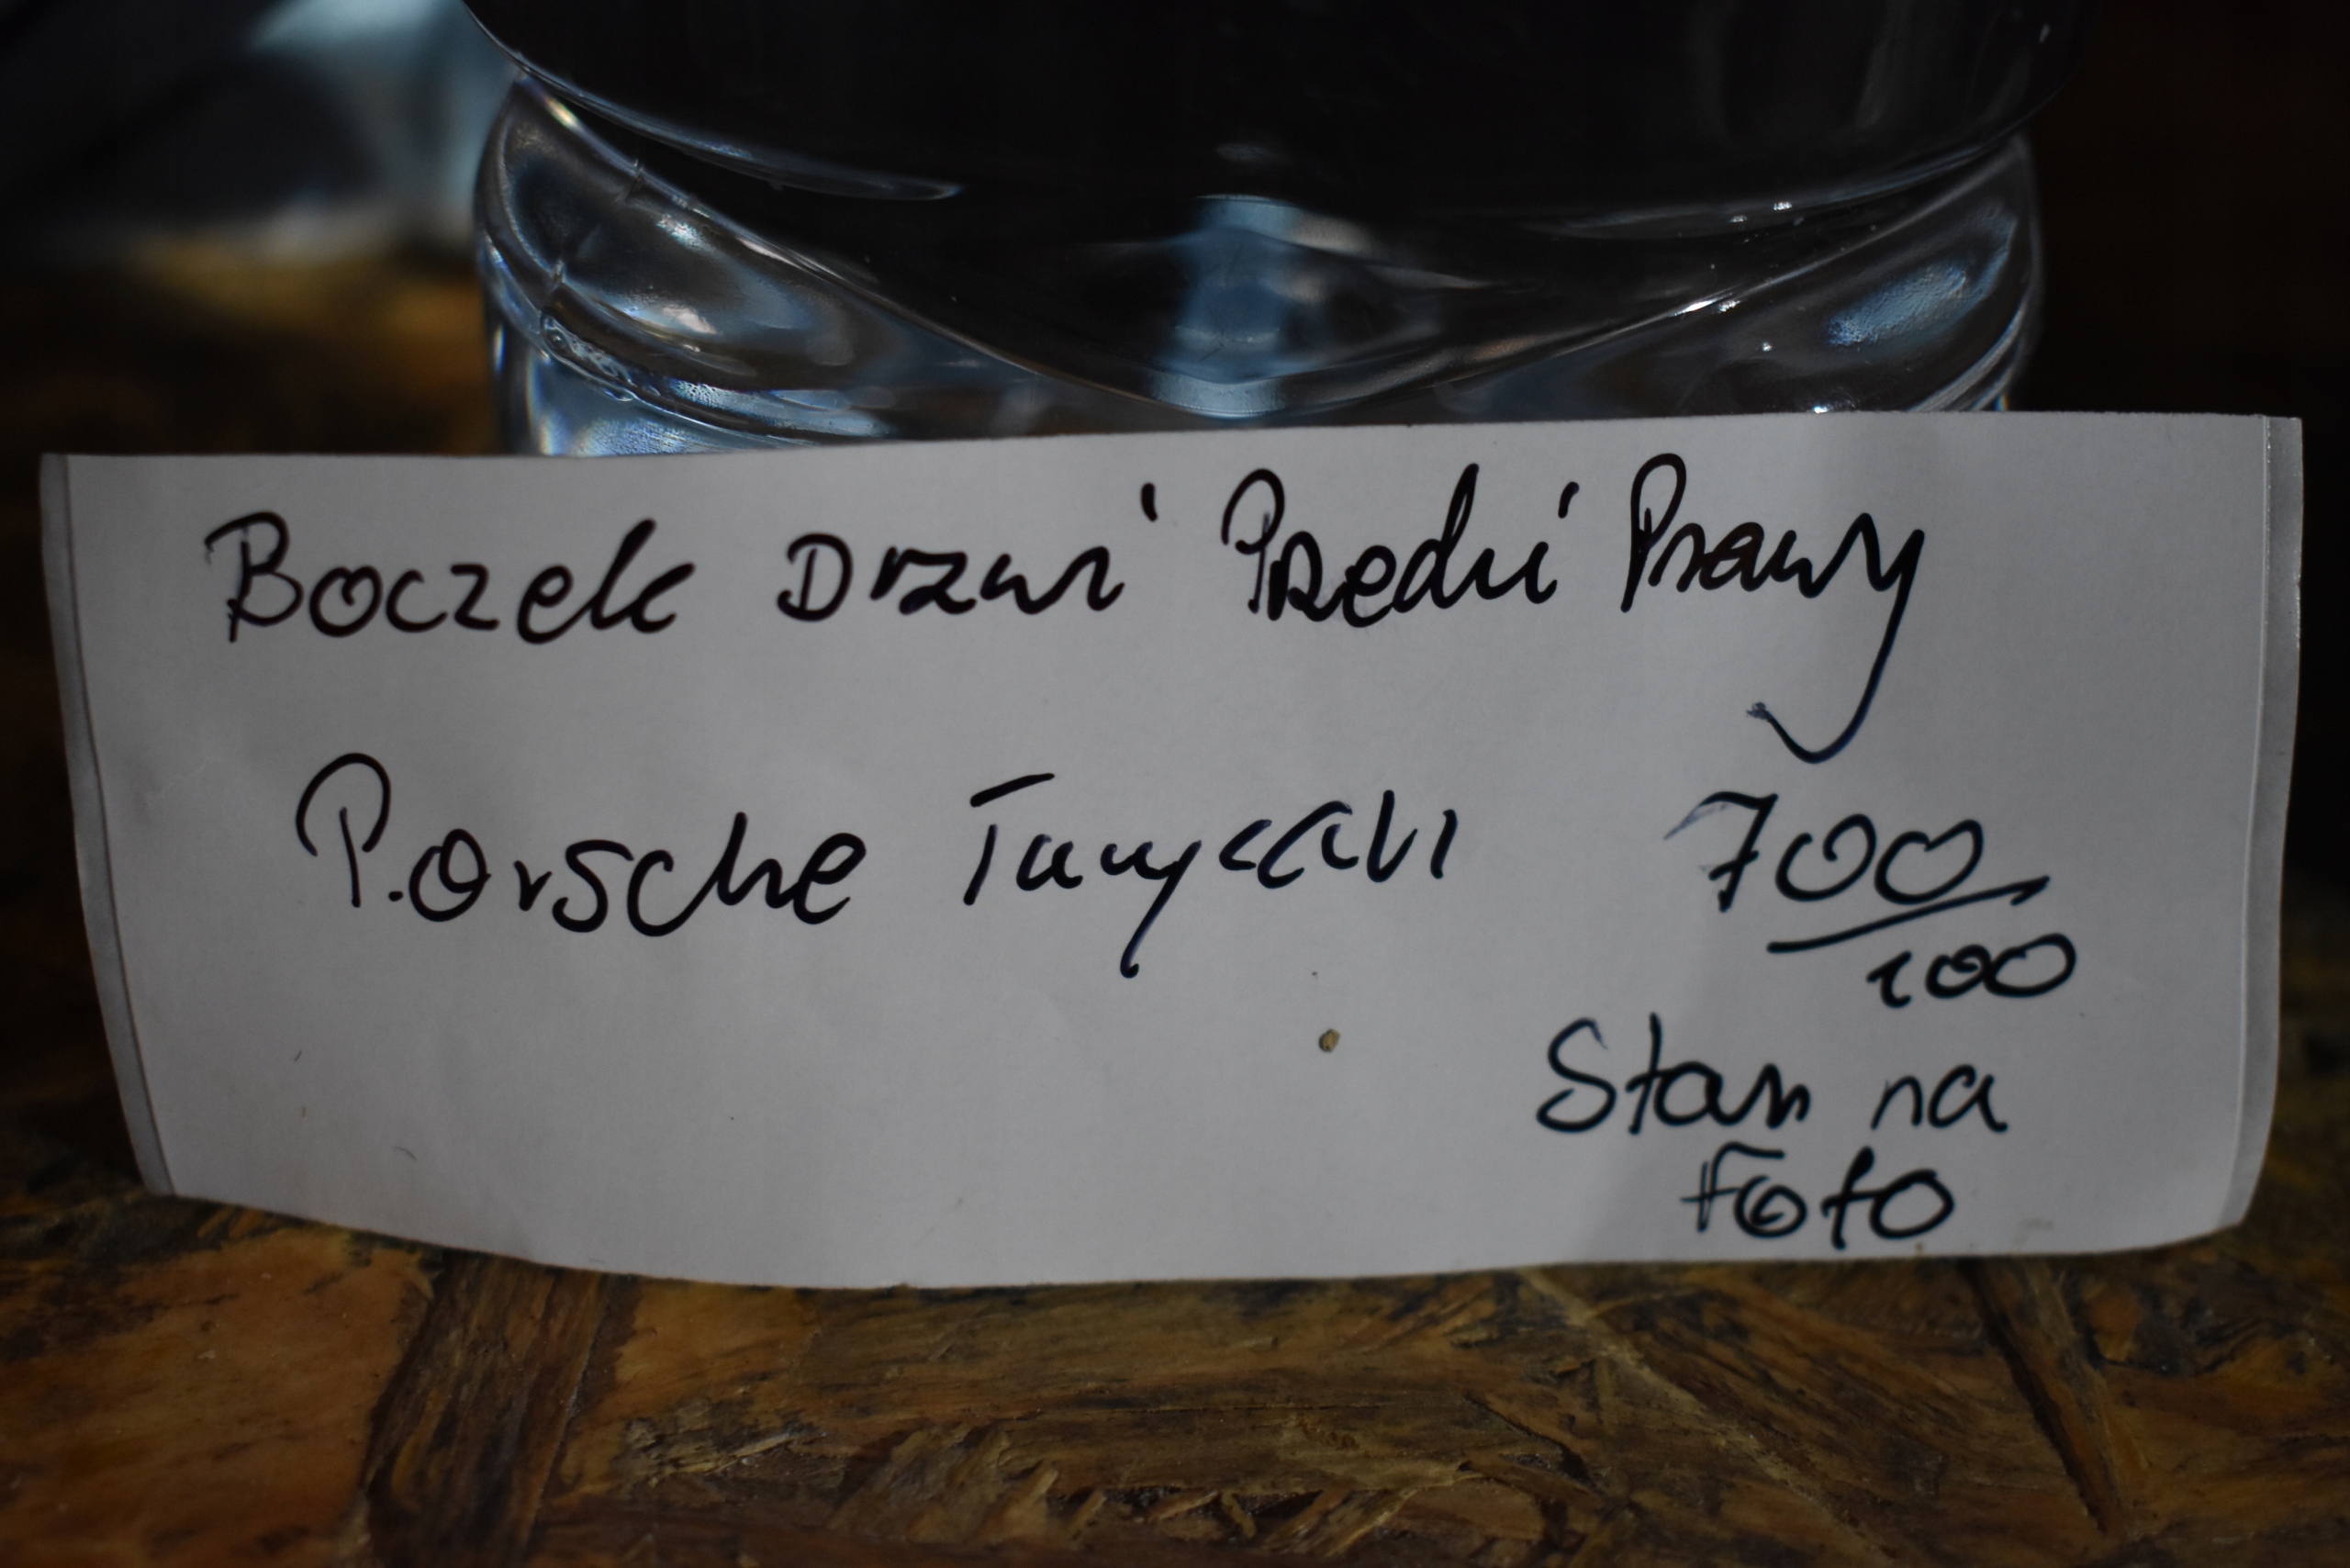 Boczek Drzwi Przedni Prawy
Porsche Taycan 700
100
Stan na
Foto